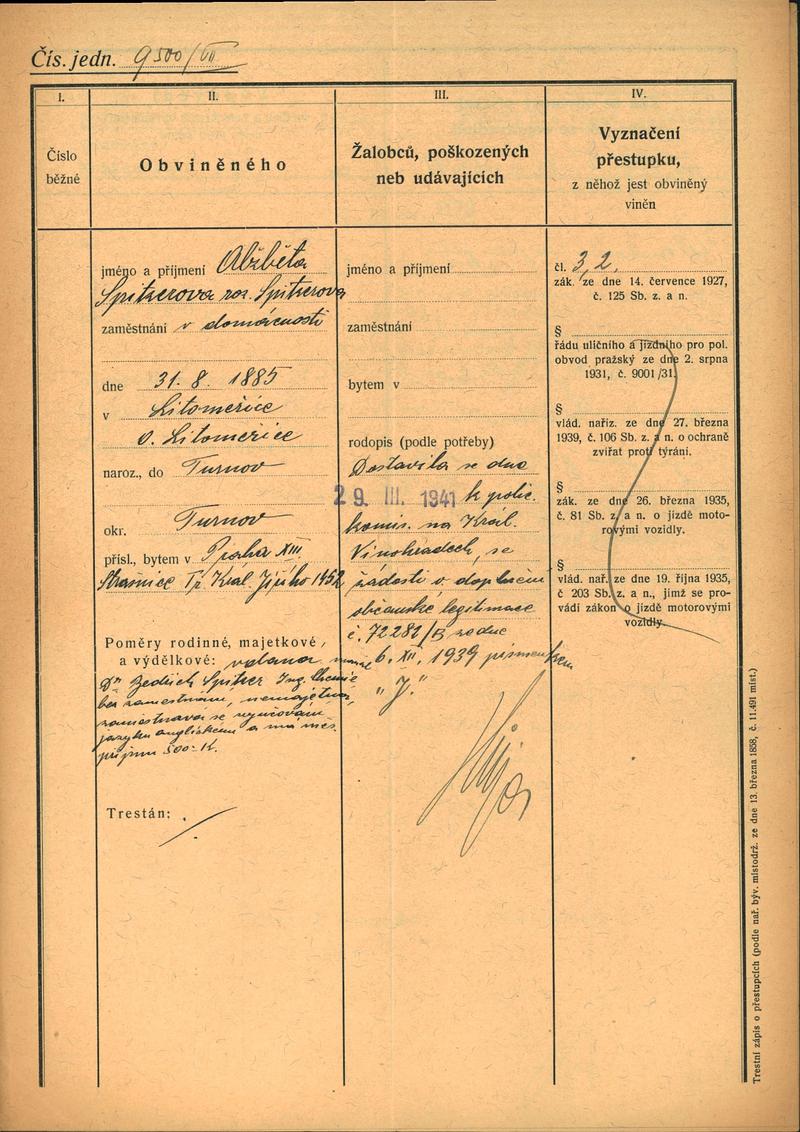 Čís. jedn. 9500/VII
I.
Číslo
běžné
II.
Obviněného
III.
Žalobců, poškozených
neb udávajících
IV.
Vyznačení
přestupku,
z něhož jest obviněný
viněn
jméno a příjmení Alžběta
Spitzerova roz. Spitzerova
zaměstnání v domácnosti
dne 31. 8. 1885
v Litoměřice
o. Litoměřice
naroz., do Turnov
okr. Turnov
přísl., bytem v Praha XIII
Strašnice Tř. Král. Jiřího 1452
Poměry rodinné, majetkové
a výdělkové: vdana, manž.
Dr Jedřich Spitzer Ing. Chemie
bez zamestnání, nemajetná,
zaměstnává se vyučováním
jazyku anglickému a má měs.
příjmu 500.- K.
Trestán:
jméno a příjmení
zaměstnání
bytem v
rodopis (podle potřeby)
Dostavila se dne
29. III. 1941 k polic.
komis. na Král.
Vinohradech, se
žádostí o doplnění
občanské legitimace
č. 72282/B ze dne
6. XII. 1939 písmenkem
"J."
čl. 3,2.
zák. ze dne 14. července 1927,
č. 125 Sb. z. a n.
§
řádu uličního a jízdního pro pol.
obvod pražský ze dne 2. srpna
1931, č. 9001/31.
§
vlád. naříz. ze dne 27. března
1939, č. 106 Sb. z. a n. o ochraně
zvířat proti týrání.
§
zák. ze dne 26. března 1935,
č. 81 Sb. z. a n. o jízdě moto-
rovými vozidly.
§
vlád. nař. ze dne 19. října 1935,
č 203 Sb. z. a n., jímž se pro-
vádí zákon o jízdě motorovými
vozidly.
Trestní zápis o přestupcích (podle nař. býv. místodrž. ze dne 13. března 1858, č. 11.491 míst.)